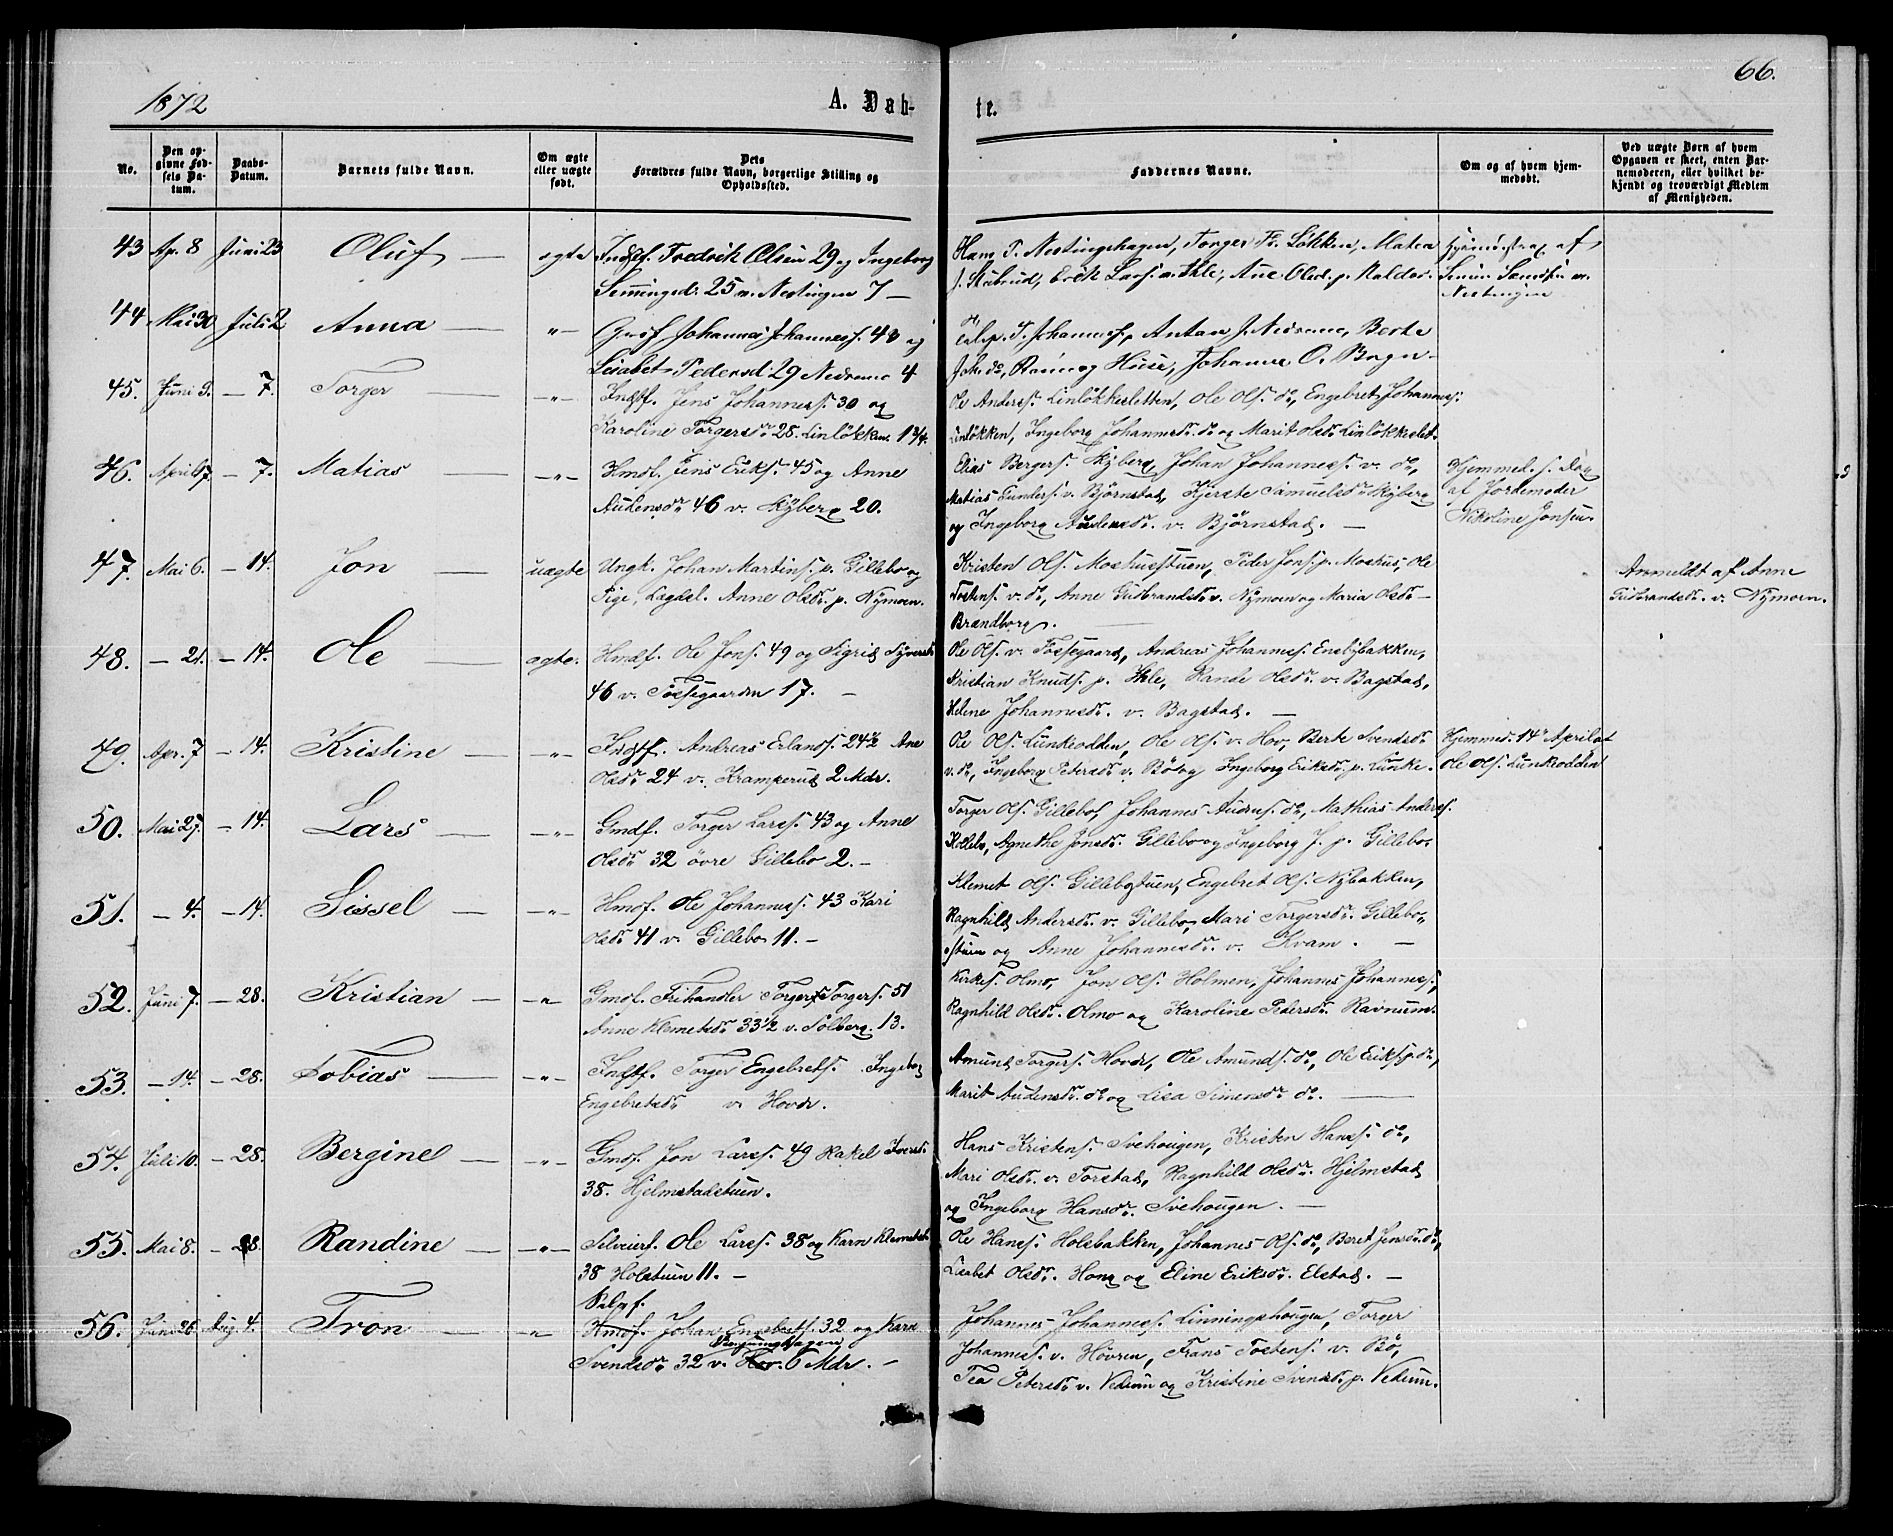 1872
A. Døb-
te.
66.
No.
Den op-
givne Fød-
sels Da-
tum.
Daabs-
Datum.
Barnets fulde Navn.
Om ægte
eller uægte
født.
Dets
Forældres fulde Navn, borgerlige Stilling og
Opholdssted.
Faddernes Navne.
Om og af hvem hjem-
medøbt.
Ved uægte Børn af hvem
Opgaven er skeet, enten Bar-
nemoderen, eller hvilket be-
kjendt og troværdigt Medlem
af Menigheden.
43 Ap. 8 Juni 23 Oluf — ægte Indst. Fredrik Olsen 29 og Ingeborg
Semingsdr. 25 v. Nestingen 7 —
Hans T. Nestingshagen, Torger Fr. Løkken, Matea
J. Stubrud, Erik Lars. v. Ihle, Ane Olsd. p. Kalder.
af
Nestingen
44 Mai 30 Juli 2 Anna — " Johannes Johanness. 48 og
Lisabet Pedersd. 29 Nedremo 4
T. Johanness., Antan J. Nedremo, Berte
Huse, Johanne O. Bagn.
45. Juni 9. — 7. Torger — " Indst. Jens Johanness. 30 og
Karoline Torgersdr. 28. Linløkken. 1 3/4.
Ole Anderss. Linløkkesletten, Ole Ols. do, Engebret Johanness.
Linløkken, Ingeborg Johannesdr. do og Marit Olsdr. Linløkkeslet.
46. April 17. — 7. Matias — " Hmdf. Jens Eriks. 45 og Anne
Audensdr. 46 v. Kyberg 20.
Elias Bergers. Kyberg, Johan Johanness. v. do,
Matias Gunders. v. Bjørnstad, Kjerste Samuelsdr. Kyberg
og Ingeborg Audensdr. v. Bjørnstad. —
Hjemmed. s. Dag
af Jordemoder
Nikoline Jonsen.
47. Mai 6. — 14. Jon — uægte Ungk. Johan Martins. v. Gillebo og
Pige, Lægdsl. Anne Olsdr. p. Nymoen.
Kristen Ols. Moshusstuen, Peder Jons. p. Moshus, Ole
Tostens. v. do, Anne Gudbrandsdr. v. Nymoen og Maria Olsdr.
Brandborg.
Anmeldt af Anne
Gudbrandsdr. v. Nymoen.
48. — 21. — 14. Ole — ægte. Hmdf. Ole Jons. 49 og Sigrid Syversdr.
46 v. Tossegaarden 17. —
Ole Ols. v. Tossegaard, Andreas Johanness. Ensbybakken,
Kristian Knuds. p. Ihle, Rande Olsdr. v. Bagstad,
Helene Johannesdr. v. Bagstad. —
49. Apr. 7 — 14. Kristine — " Indst. Andreas Erlands. 24½ Ane
Olsdr. 24 v. Kramperud 2 Mdr.
Ole Ols. Lunkeodden, Ole Ols. v. Hov, Berte Svendsdr.
v. do, Ingeborg Petersdr. v. Bö og Ingeborg Eriksdr. p. Lunke.
Hjemmed. 14de April af
Ole Ols. Lunkeodden
50. Mai 27. — 14. Lars — " Gmdf. Torger Larss. 43 og Anne
Olsdr. 32 övre Gillebo 2. —
Torger Ols. Gillebo, Johannes Audens. do, Mathias Anderss.
Kollebo, Agnethe Jonsdr. Gillebo og Ingeborg J. p. Gillebo.
51. — 4. — 14. Sissel — " Hmdf. Ole Johanness. 43 Kari
Olsdr. 41 v. Gillebo 11. —
Klemet Ols. Gillebostuen, Engebret Ols. Nybakken,
Ragnhild Andersdr. v. Gillebo, Mari Torgersdr. Gillebo-
stuen og Anne Johannesdr. v. Kvam. —
52. Juni 7. — 28. Kristian — " Gmdf. Frihandler Torger Torgers. 51
Anne Klemetsdr. 33½ v. Solberg. 13.
Kirkes. Olmo, Jon Ols. Holmen, Johannes Johanness.,
Ragnhild Olsdr. Olmo og Karoline Pedersdr. Ravnum.
53. — 14. — 28. Tobias — " Indst. Torger Engebrets. Ingeborg
Engebretsdr. v. Hovde.
Amund Torgers. Hovde, Ole Amunds. do, Ole Eriks. p. do,
Marit Audensdr. do og Lisa Simensdr. do. —
54. Juli 10. — 28. Berginel — " Gmdf. Jon Larss. 49 Rakel Iversdr.
38. Hjelmstadstuen.
Hans Kristens. Svehougen, Kristen Hanss. do,
Mari Olsdr. v. Torstad, Ragnhild Olsdr. Hjelmstad
og Ingeborg Hansdr. Svehougen. —
55. Mai 8. — 28. Randine — " Selveierf. Ole Larss. 38 og Karn Klemetsdr.
38 Holstuen 11. —
Ole Hanss. Holsbakken, Johannes Ols. do, Beret Jensdr. do,
Lisabet Olsdr. Hong og Eline Eriksdr. Elstad. —
56. Juni 26 Aug. 4. Tron — " Hmdf. Johan Engebrets. 32 og Karn
Svendsdr. 32 v. Hov. 6 Mdr. —
Johannes Johanness. Linningshougen, Torger
Johanness. v. Hovren, Frans Tostens. v. Bö,
Tea Petersdr. v. Vedum og Kristine Svendsdr. p. Vedum.